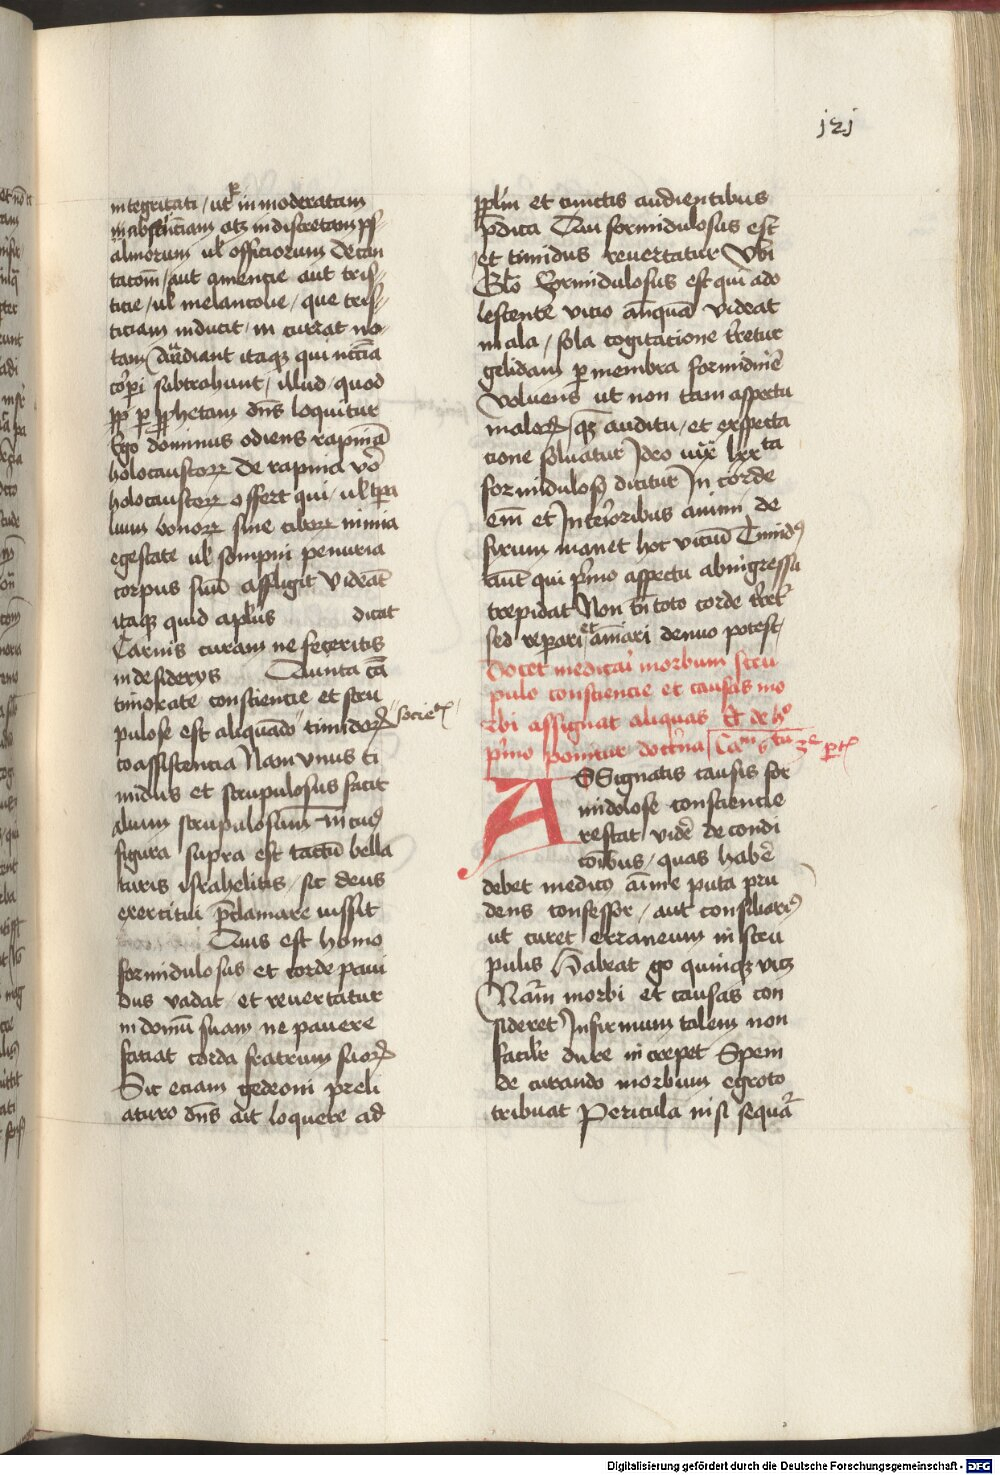 121
integritati / ut in moderatam
abstinenciam atque indiscretam ps-
almorum vel officiorum decan
tacionem / aut amencie aut tris-
ticie / vel melancolie / que tris-
ticiam inducit / in currat no-
tam Audiant itaque qui
corpori subtrahunt / illud / quod
per prophetam dns loquitur
Ego dominus odiens rapinā
holocaustorum De rapina vō
holocaustorum offert qui / vel
lium bonorum sine ciborum nimia
egestate vel sompni penuria
corpus suū affligit Videāt
itaque quid aplūs dicat
Carnis curam ne feceritis
in desiderijs Quinta cā
timorate consciencie et scru
pulose est aliquādo timidorum societ
assistencia Nam vnus ti
midus et scrupulosus facit
alium scrupulosum in cuius
figura supra est tactū bella
turis israhelitis / sic deus
exercitui pclamare iussit
Quis est homo
formidulosus et corde paui
dus vadat et reuertatur
in domū suam ne pauere
faciat corda fratrum suorum
Sic eciam gedeoni preli
aturo dns ait loquere ad
pplm et cunctis audientibus
pdica Qui formidulosus est
et timidus reuertatur Vbi
Glo Formidulosus est qui ado
lescente vicio anquā videat
mala / sola cogitacione tretur
gelidam per membra formidinē
voluens ut non tam aspectu
malorum quam auditu / et expecta
cione soluatur Ideo lxxta
formidulosus dicitur In corde
em et Interioribus animi de
fixum manet hoc viciū Timidus
aut qui primo aspectu
trepidat Non tn toto corde
sed reparari et animari denuo potest
Docet medicari morbum scru
pulo consciencie et causas mo
rbi assignat aliquas Et de hoc
primo ponitur doctrina Cam 6tum 3e partis
ASsignatis causis for
midolose consciencie
restat videre de condi
cionibus / quas habē
debet medicus anime puta pru
dens confessor / aut consiliarius
ut curet erraneum in scru
pulis Habeat go quinque
Nam morbi et causas con
sideret Infirmum talem non
faciliter dure increpet Spem
de curando morbum egroto
tribuat Pericula nisi sequā
Digitalisierung gefördert durch die Deutsche Forschungsgemeinschaft - DFG